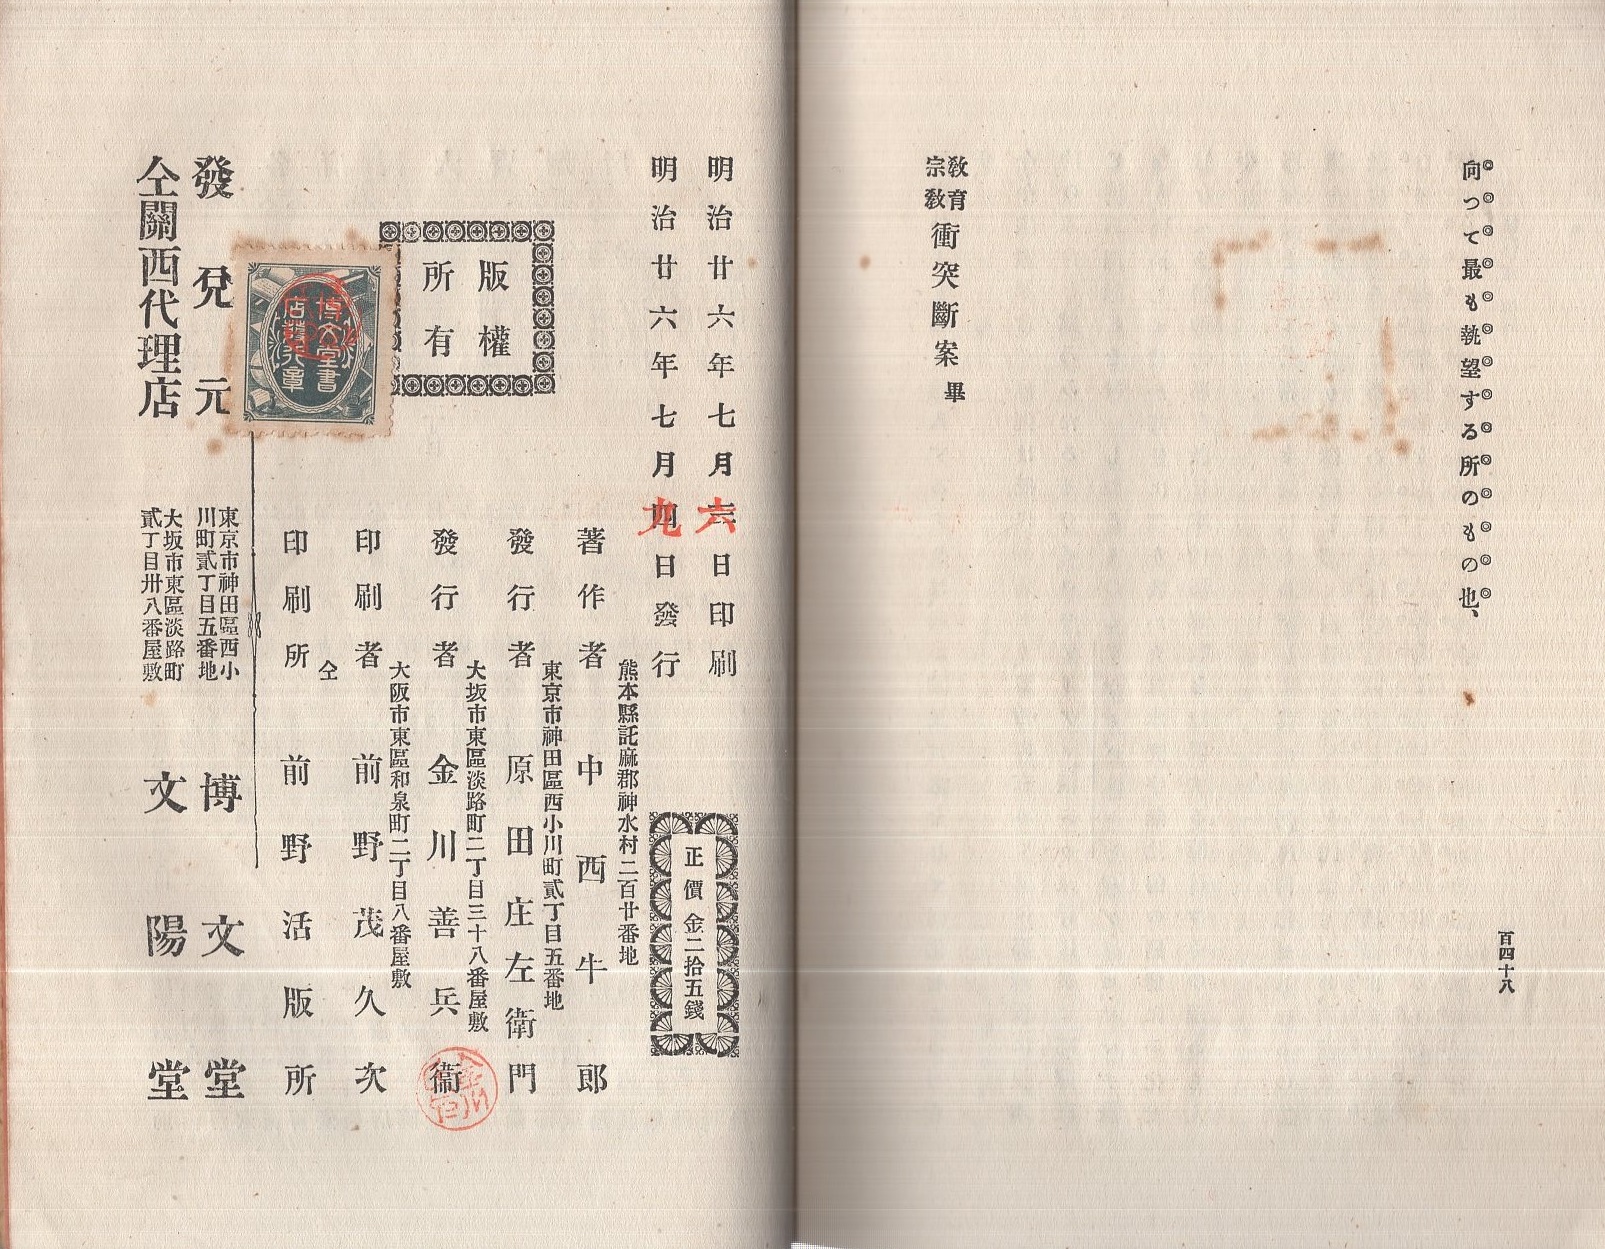 向つて最も執望する所のもの也、
教育
宗教
衝突斷案 畢
百四十八
明治廿六年七月六日印刷
明治廿六年七月九日發行
正價金二拾五錢
版權
所有
博文堂書
店發行章
熊本縣託麻郡神水村二百廿番地
著作者 中西牛郎
東京市神田區西小川町貳丁目五番地
發行者 原田庄左衛門
大坂市東區淡路町二丁目三十八番屋敷
發行者 金川善兵衞
大阪市東區和泉町二丁目八番屋敷
印刷者 前野茂久次
仝
印刷所 前野活版所
發兌元 東京市神田區西小川町貳丁目五番地 博文堂
仝關西代理店 大坂市東區淡路町貳丁目卅八番屋敷 文陽堂